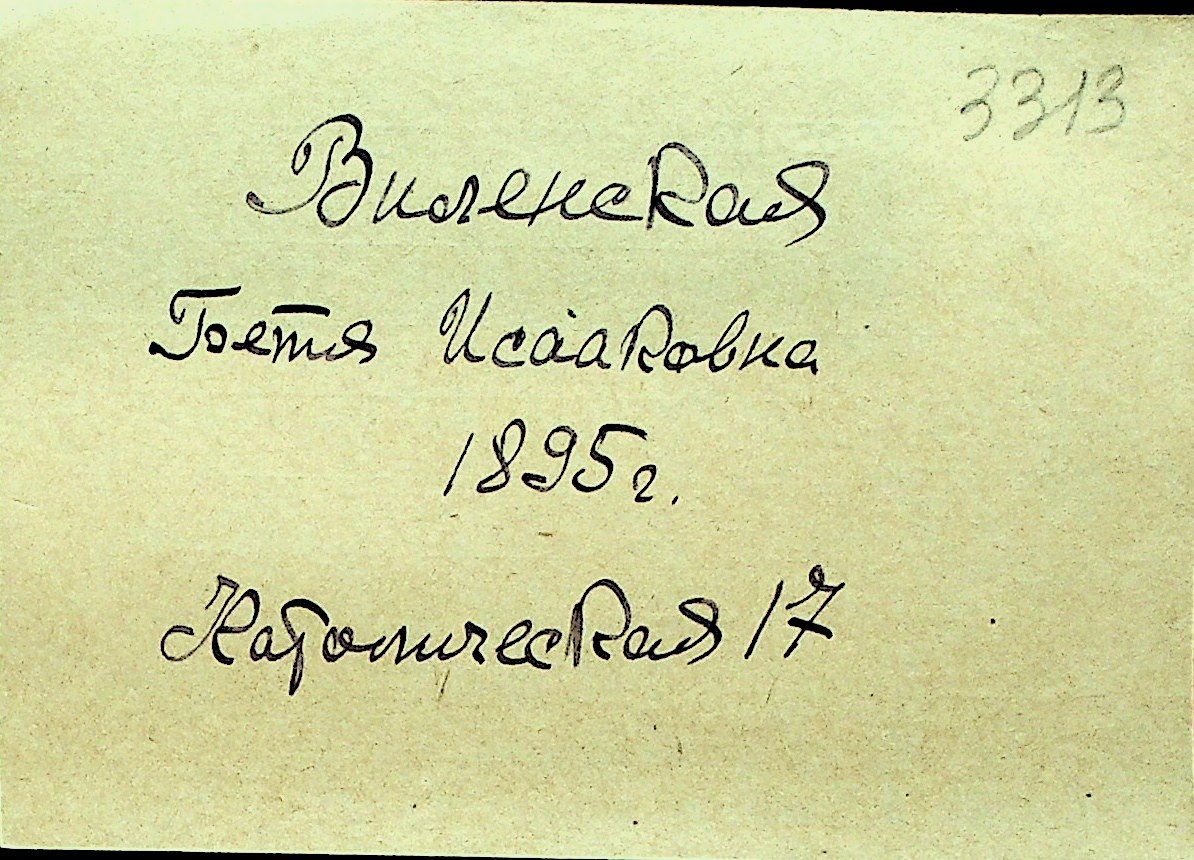 3313
Виленская
Бетя Исааковна
1895г.
Католическая 17